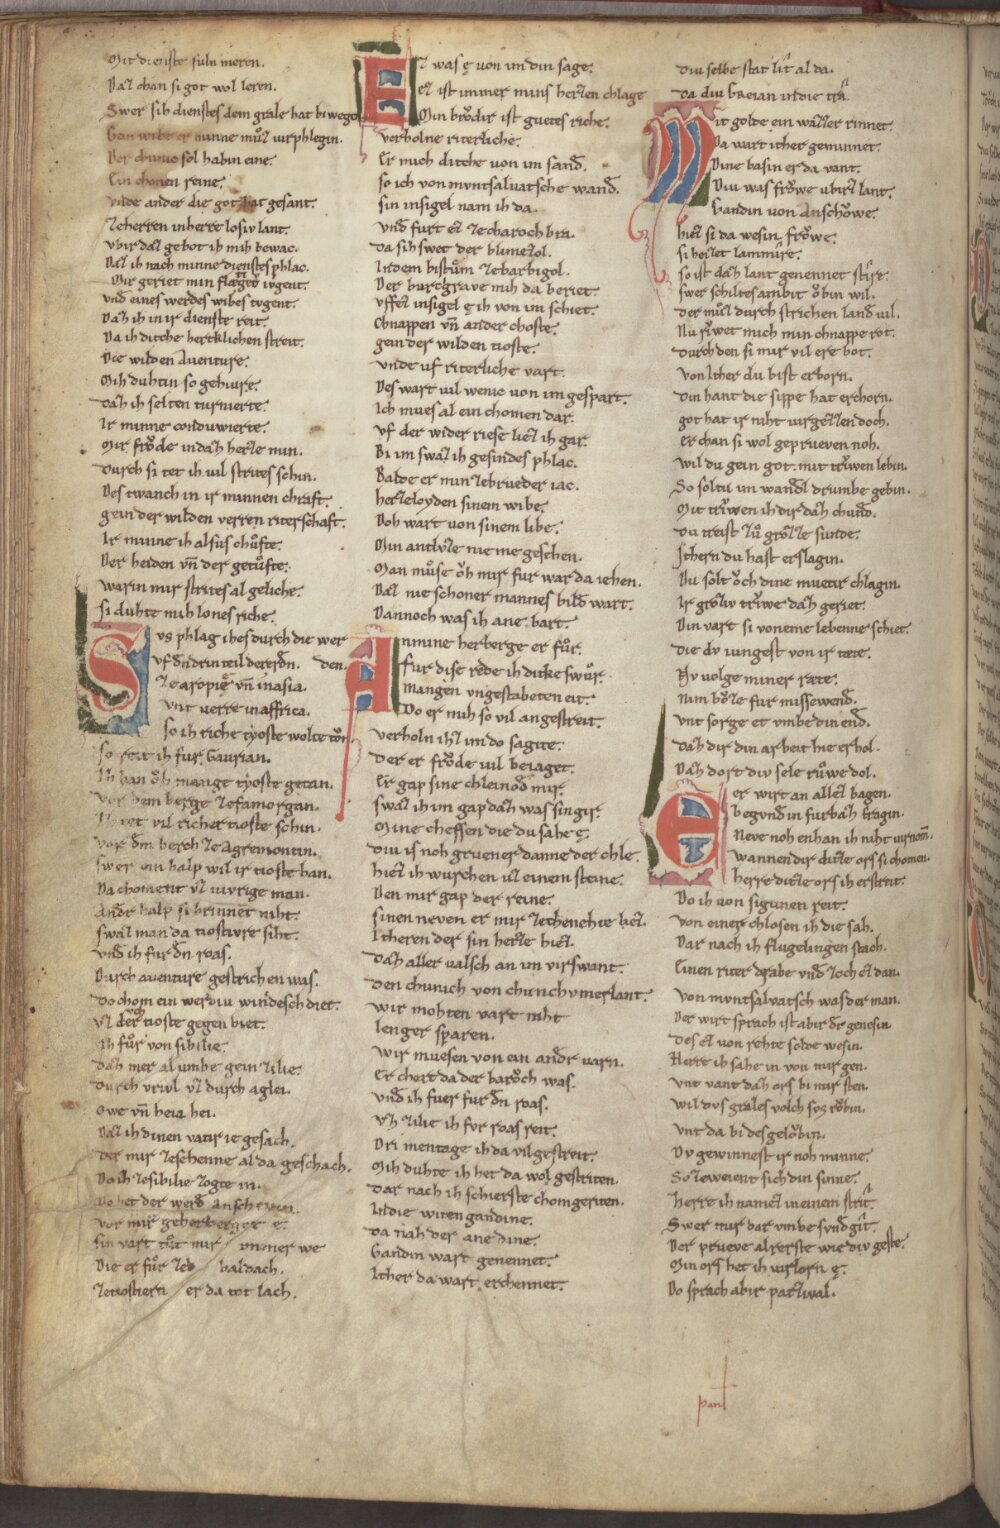 Mit dienste suln meren.
Daz chan si got wol leren.
Swer sih dienstes dem grale hat biwegē
Gein wibe er minne mvͦz virphlegin.
Der chunic sol habin eine.
Ein chonen reine.
vnde ander die got hat gesant.
ze herren inherre losiv lant.
vbir daz gebot ih mih bewac.
Daz ih nach minne dienstes phlac.
Mir geriet min flætige ivgent.
vnd eines werdes wibes tvgent.
Daz ih in ir dienste reit.
Da ih dicche hertklichen streit.
Die wilden Auenture.
Mih duhtin so gehiure.
daz ih selten turnierte.
Ir minne conduwierte.
Mir froͤde indaz herze min.
durch si tet ih vil strites schin.
Des twanch in ir minnen chraft.
gein der wilden verren riterschaft.
Ir minne ih alsus choͮfte.
Der heiden vñ der getoͮfte.
warin mir strites al geliche.
si duhte mih lones riche.
Svs phlag ihes durch die wer
vf dn̄ drin teil der erdn̄. den.
ze aropię vn̄ in asia.
vnt verre in affrica.
So ih riche tyoste wolte tv̊n
so reit ih fur. Gaurian.
Ih han oͮh mange tyoste getan.
vor dem berge zefamorgan.
Ih tet vil richer tioste schin.
vor dm̄ berch ze Agremontin.
swer ein halp wil ir tioste han.
Da choment vz uivrige man.
Andr̄ halp si brinnet niht.
swaz man da tiostivre siht.
vnd ih fur dn̄ roas.
Durch auenture gestrichen was.
Do chom ein werdiv windesch diet.
vz durch tioste gegen biet.
Ih fuͦr von sibilie.
daz mer al vmbe gein zilie.
durch vriul vz durch aglei.
owe vn̄ heia hei.
Daz ih dinen vatir ie gesach.
der mir zesehenne al da geschach.
Do ih zosibilie zogte in.
Do het der werd Anschevin.
vor mir geherberget e.
Sin vart tuͦt mir immer we
Die er fuͦr ze baldach.
zetiostiern er da tot lach.
Ez was ę von im din sage.
ez ist immer mins herzen chlage
Min broͮdir ist guetes riche.
verholne riterliche.
Er mich dicche von im sand.
so ich von mvntsaluatsche wand.
sin insigel nam ih da.
vnd furt ez ze charochbra.
da sih swet der blimezol.
Indem bistum zebarbigol.
Der burcgrave mih da beriet.
vffez insigel ę ih von im schiet.
chnappen vn̄ ander choste.
gein der wilden tioste.
vnde vf riterliche vart.
Des wart vil wenic von im gespart.
Ich mues al ein chomen dar.
vf der wider riese liez ih gar.
Bi im swaz ih gesindes phlac.
Balde er min zebrueder iac.
herzeloyden sinem wibe.
Doh wart von sinem libe.
Min antluze nie me geschen.
Man muͦse oͮh mir fur war da iehen.
Daz nie schoner mannes bild wart.
Dannoch was ih ane bart.
An mine herberge er fuͦr.
fur dise rede ih dicke swuͦr.
mangen vngestabeten eit.
Do er mih so vil angestreit.
verholn ihz im do sagite.
der er froͤde vil beiaget.
Er gap sine chleinod mir.
swaz ih im gap daz was sin gir.
Mine cheffen die du sahe ę.
diu is noh gruener danne der chle.
hiez ih wurchen vz einem steine.
Den mir gap der reine.
sinen neven er mir zechenehte liez.
Itheren der sin herze hiez.
daz aller valsch an im virswant.
den chunich von chunchvmerlant.
wir mohten vart niht
lenger sparen.
wir muesen von ein andr̄ varn.
Er chert da der baroͮch was.
vnd ih fuer fur dn̄ roas.
vz zilie ih fvr roas reit.
Dri mentage ih da vil gestreit.
Mih duhte ih het da wol gestriten.
dar nach ih schierste chom geriten.
Indie witen gandine.
da nah der ane dine.
Gandin wart genennet.
Ither da wart erchennet.
diu selbe stat lit al da.
da diu Greian indie tra.
Mit golde ein wazzer rinnet.
Da wart ither geminnet.
Dine basin er da vant.
Diu was froͮwe vbirz lant.
Gandin von Anschoͮwe.
hiez si da wesin froͮwe.
si heizet lammire.
so ist daz lant genennet stire.
swer schiltes ambit oͮbin wil.
der muͦz durch strichen land vil.
Nu riwet mich min chnappe rot.
durch den si mir vil ere bot.
von Ither du bist erborn.
din hant die sippe hat erchorn.
got hat ir niht virgezzen doch.
er chan si wol geprueven noh.
wil du gein got mit triwen lebin.
So soltu im wandl drumbe gebin.
Mit triwen ih dir daz chund.
du treist zuͦ grozze sunde.
Ithern du hast erslagin.
Du solt oͮch dine mueter chlagin.
Ir groziv triwe daz geriet.
Din vart si vonme lebenne schiet.
die dv iungest von ir tæte.
Nv volge miner ræte.
nim bvͦze fur missewend.
vnt sorge et vmbe din end.
daz dir din arbeit hie erhol.
Daz dort div sele ruͦwe dol.
Der wirt an allez bagen.
begvnd in furbaz fragin.
Neve noh enhan ih niht virnom̄.
wannen dir dizze ors si chomen.
herre ditze ors ih erstreit.
Do ih von sigunen reit.
von einer chlosen ih die sah.
Dar nach ih flugelingen stach.
Einen riter drabe vnd zoch ez dan.
von mvntsalvatsch was der man.
Der wirt sprach ist abir dr̄ genesin.
des ez von rehte solde wesin.
Herre ih sahe in von mir gen.
vnt vant daz ors bi mir sten.
wil dvs grales volch svs roͮbin.
vnt da bi des geloͮbin.
Dv gewinnest ir noh minne.
So zeweient sich din sinne.
Herre ih namez in einem strit.
Swer mir dar vmbe svnd git.
Der prueve alrerste wie div geste.
Min ors het ih virlorn ę.
Do sprach abir parzival.